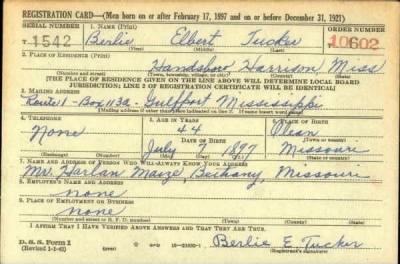 REGISTRATION CARD—(Men born on or after February 17, 1897 and on or before December 31, 1921)
SERIAL NUMBER
1. NAME (Print)
ORDER NUMBER
T 1542
Berlie Elbert Tucker
10602
(First) (Middle) (Last)
2. PLACE OF RESIDENCE (Print)
Handsboro Harrison Miss
(Number and street) (Town, township, village, or city) (County) (State)
[THE PLACE OF RESIDENCE GIVEN ON THE LINE ABOVE WILL DETERMINE LOCAL BOARD
JURISDICTION; LINE 2 OF REGISTRATION CERTIFICATE WILL BE IDENTICAL]
3. MAILING ADDRESS
Route 1 - Box 113a - Gulfport Mississippi
4. TELEPHONE
5. AGE IN YEARS
6. PLACE OF BIRTH
None
44
Olean
DATE OF BIRTH
(Town or county)
July 7 1897
Missouri
(Mo.) (Day) (Yr.)
(State or country)
7. NAME AND ADDRESS OF PERSON WHO WILL ALWAYS KNOW YOUR ADDRESS
Mr. Harlan Maize, Bethany, Missouri
8. EMPLOYER'S NAME AND ADDRESS
none
9. PLACE OF EMPLOYMENT OR BUSINESS
none
(Number and street or R. F. D. number) (Town) (County) (State)
I AFFIRM THAT I HAVE VERIFIED ABOVE ANSWERS AND THAT THEY ARE TRUE.
D. S. S. Form 1
(Revised 1-1-42) (over)
Berlie E. Tucker
(Registrant's signature)